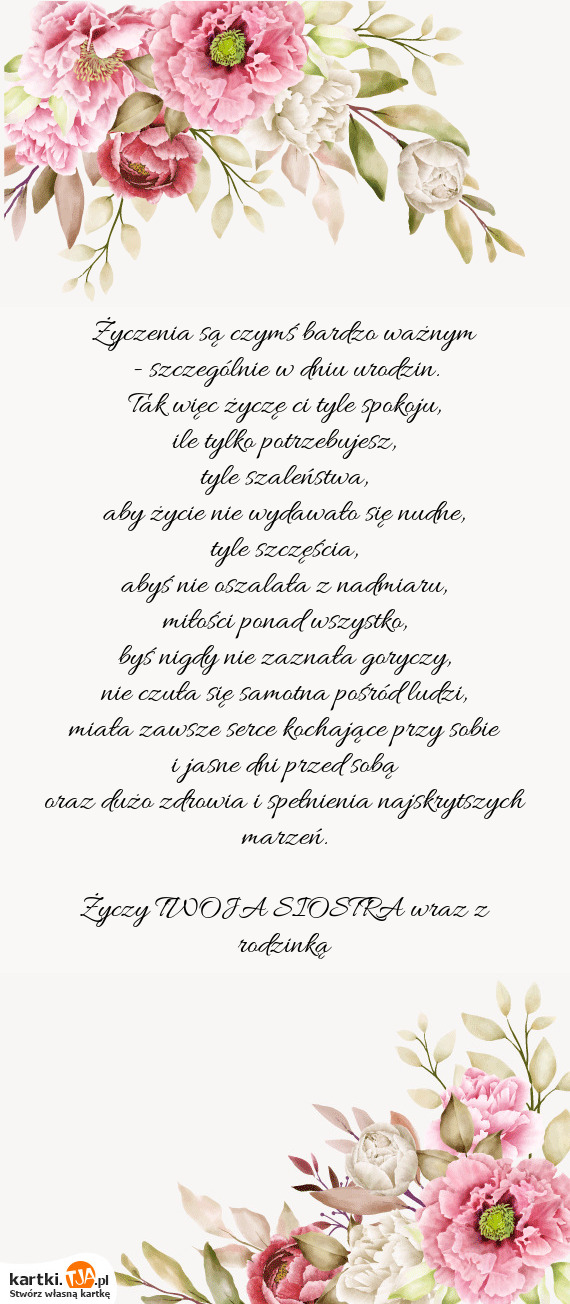 Życzenia są czymś bardzo ważnym
- szczególnie w dniu urodzin.
Tak więc życzę ci tyle spokoju,
ile tylko potrzebujesz,
tyle szaleństwa,
aby życie nie wydawało się nudne,
tyle szczęścia,
abyś nie oszalała z nadmiaru,
miłości ponad wszystko,
byś nigdy nie zaznała goryczy,
nie czuła się samotna pośród ludzi,
miała zawsze serce kochające przy sobie
i jasne dni przed sobą
oraz dużo zdrowia i spełnienia najskrytszych
marzeń.
Życzy TWOJA SIOSTRA wraz z
rodzinką
kartki.TJA.pl
Stwórz własną kartkę